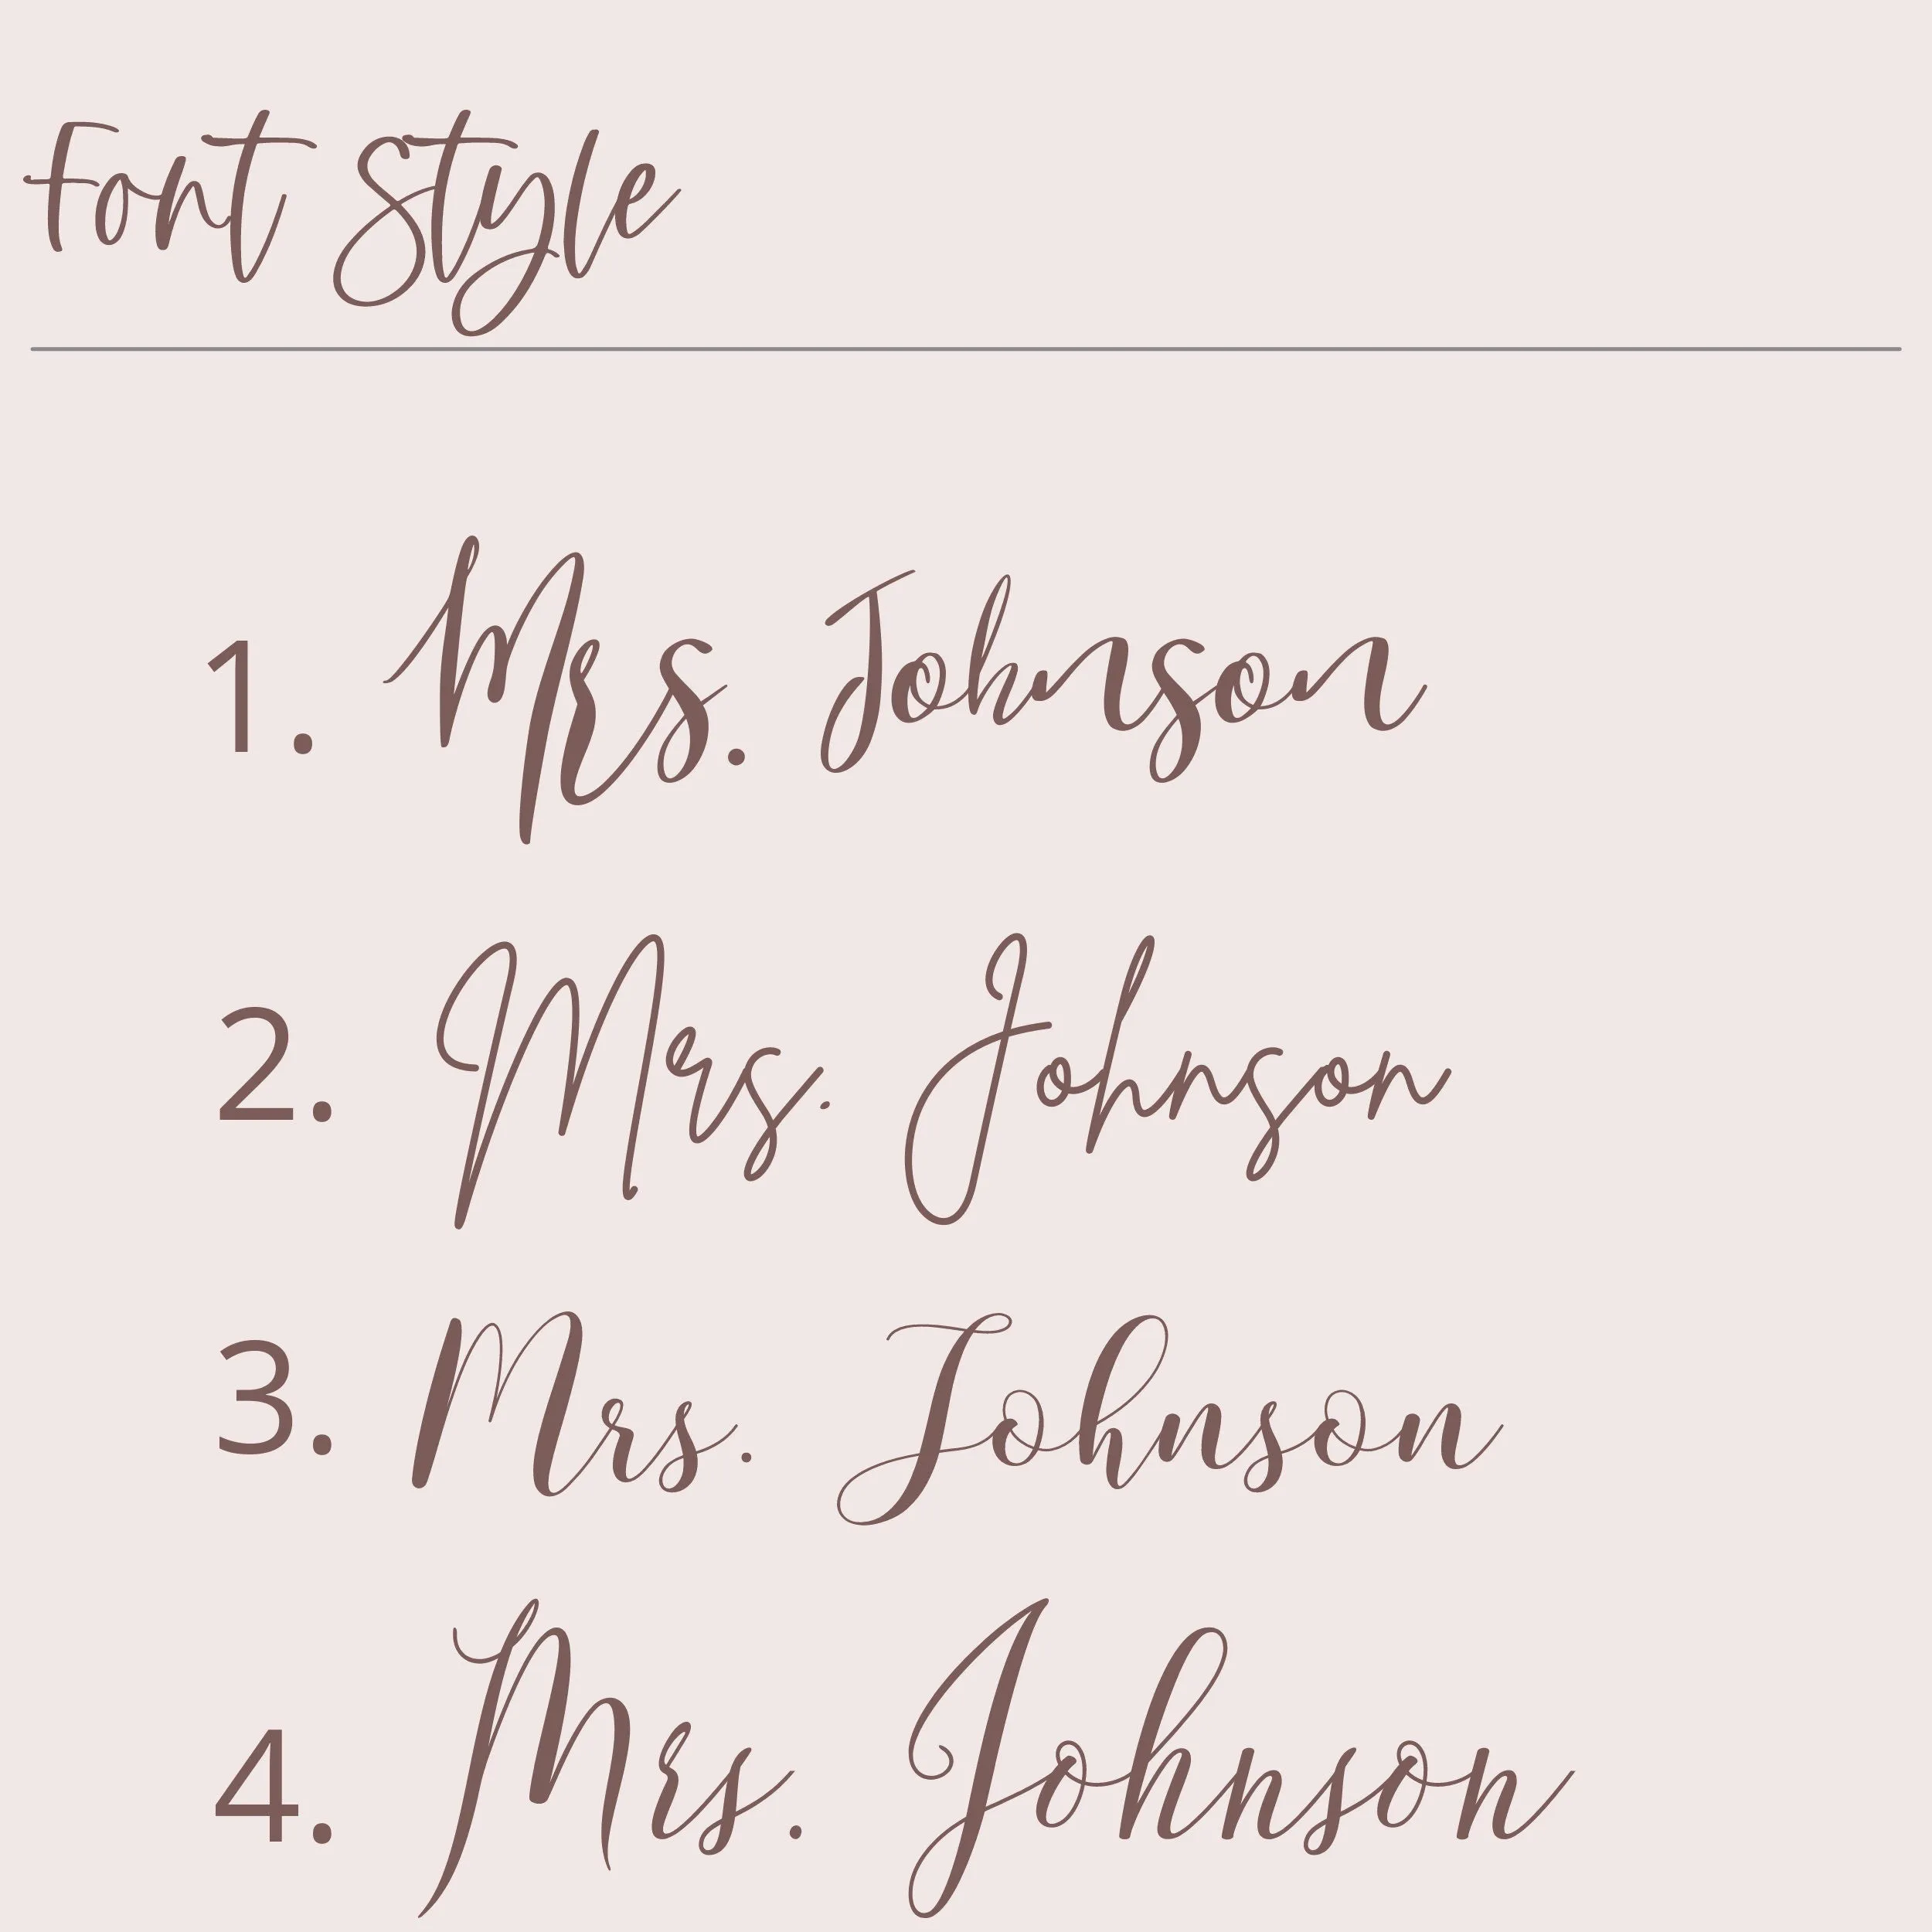 Font Style
1. Mrs. Johnson
2. Mrs. Johnson
3. Mrs. Johnson
4. Mrs. Johnson